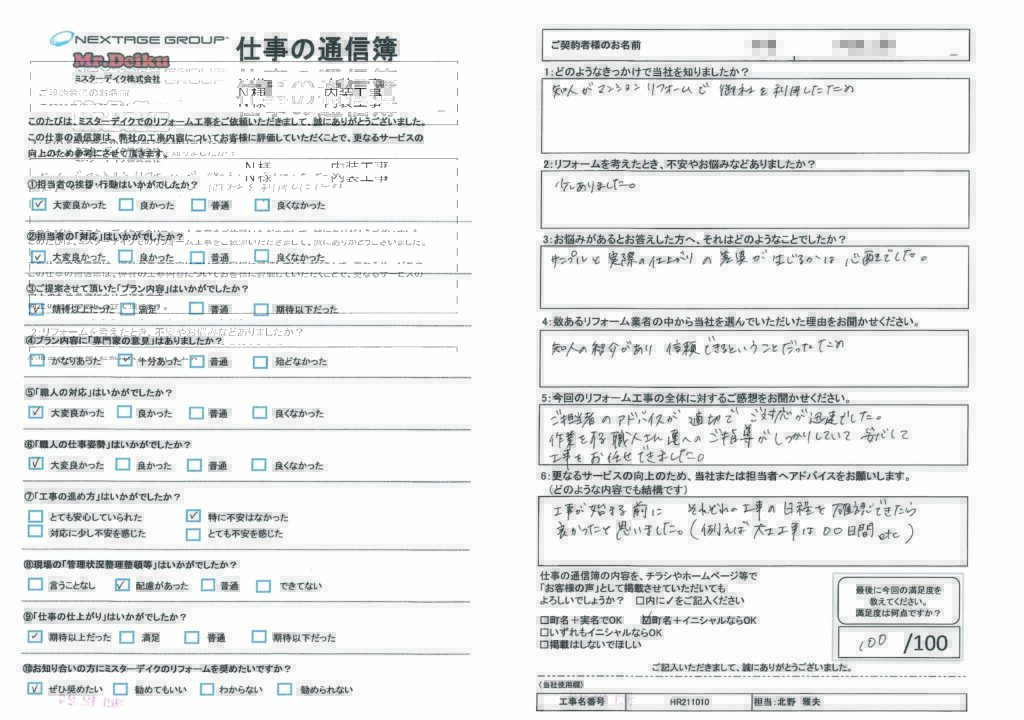 NEXTAGE GROUP
Mr.Deiku
ミスターデイク株式会社
仕事の通信簿
N様 内装工事
このたびは、ミスターデイクでのリフォーム工事をご依頼いただきまして、誠にありがとうございました。
この仕事の通信簿は、弊社の工事内容についてお客様に評価していただくことで、更なるサービスの
向上のため参考にさせて頂きます。
N様 内装工事
①担当者の挨拶・行動はいかがでしたか?
☑大変良かった □良かった □普通 □良くなかった
②担当者の「対応」はいかがでしたか?
☑大変良かった □良かった □普通 □良くなかった
③ご提案させて頂いた「プラン内容」はいかがでしたか?
☑期待以上だった □満足 □普通 □期待以下だった
④プラン内容に「専門家の意見」はありましたか?
□かなりあった ☑十分あった □普通 □殆どなかった
⑤「職人の対応」はいかがでしたか?
☑大変良かった □良かった □普通 □良くなかった
⑥「職人の仕事姿勢」はいかがでしたか?
☑大変良かった □良かった □普通 □良くなかった
⑦「工事の進め方」はいかがでしたか?
□とても安心していられた ☑特に不安はなかった
□対応に少し不安を感じた □とても不安を感じた
⑧現場の「管理状況整理整頓等」はいかがでしたか?
□言うことなし ☑配慮があった □普通 □できてない
⑨「仕事の仕上がり」はいかがでしたか?
☑期待以上だった □満足 □普通 □期待以下だった
⑩お知り合いの方にミスターデイクのリフォームを奨めたいですか?
☑ぜひ奨めたい □勧めてもいい □わからない □勧められない
ご契約者様のお名前
1:どのようなきっかけで当社を知りましたか?
知人がマンションリフォームで 御社を利用したため
2:リフォームを考えたとき、不安やお悩みなどありましたか?
少しありました。
3:お悩みがあるとお答えした方へ、それはどのようなことでしたか?
サンプルと実際の仕上がりの差異が生じるかは心配でした。
4:数あるリフォーム業者の中から当社を選んでいただいた理由をお聞かせください。
知人の紹介があり 信頼できるということだったため
5:今回のリフォーム工事の全体に対するご感想をお聞かせください。
ご担当者のアドバイスが適切で ご対応が迅速でした。
作業をする職人さん達へのご指導がしっかりしていて 安心して
工事をお任せできました。
6:更なるサービスの向上のため、当社または担当者へアドバイスをお願いします。
(どのような内容でも結構です)
工事が始まる前に それぞれの工事の日程を確認できたら
良かったと思いました。(例えば 大工工事は〇〇日間 etc)
仕事の通信簿の内容を、チラシやホームページ等で
「お客様の声」として掲載させていただいても
よろしいでしょうか? □内に✓をご記入ください
□町名+実名でOK ☑町名+イニシャルならOK
□いずれもイニシャルならOK
□掲載はしないでほしい
最後に今回の満足度を
教えてください。
満足度は何点ですか?
100/100
ご記入いただきまして、誠にありがとうございました。
(当社使用欄)
工事名番号 HR211010 担当:北野 雅夫